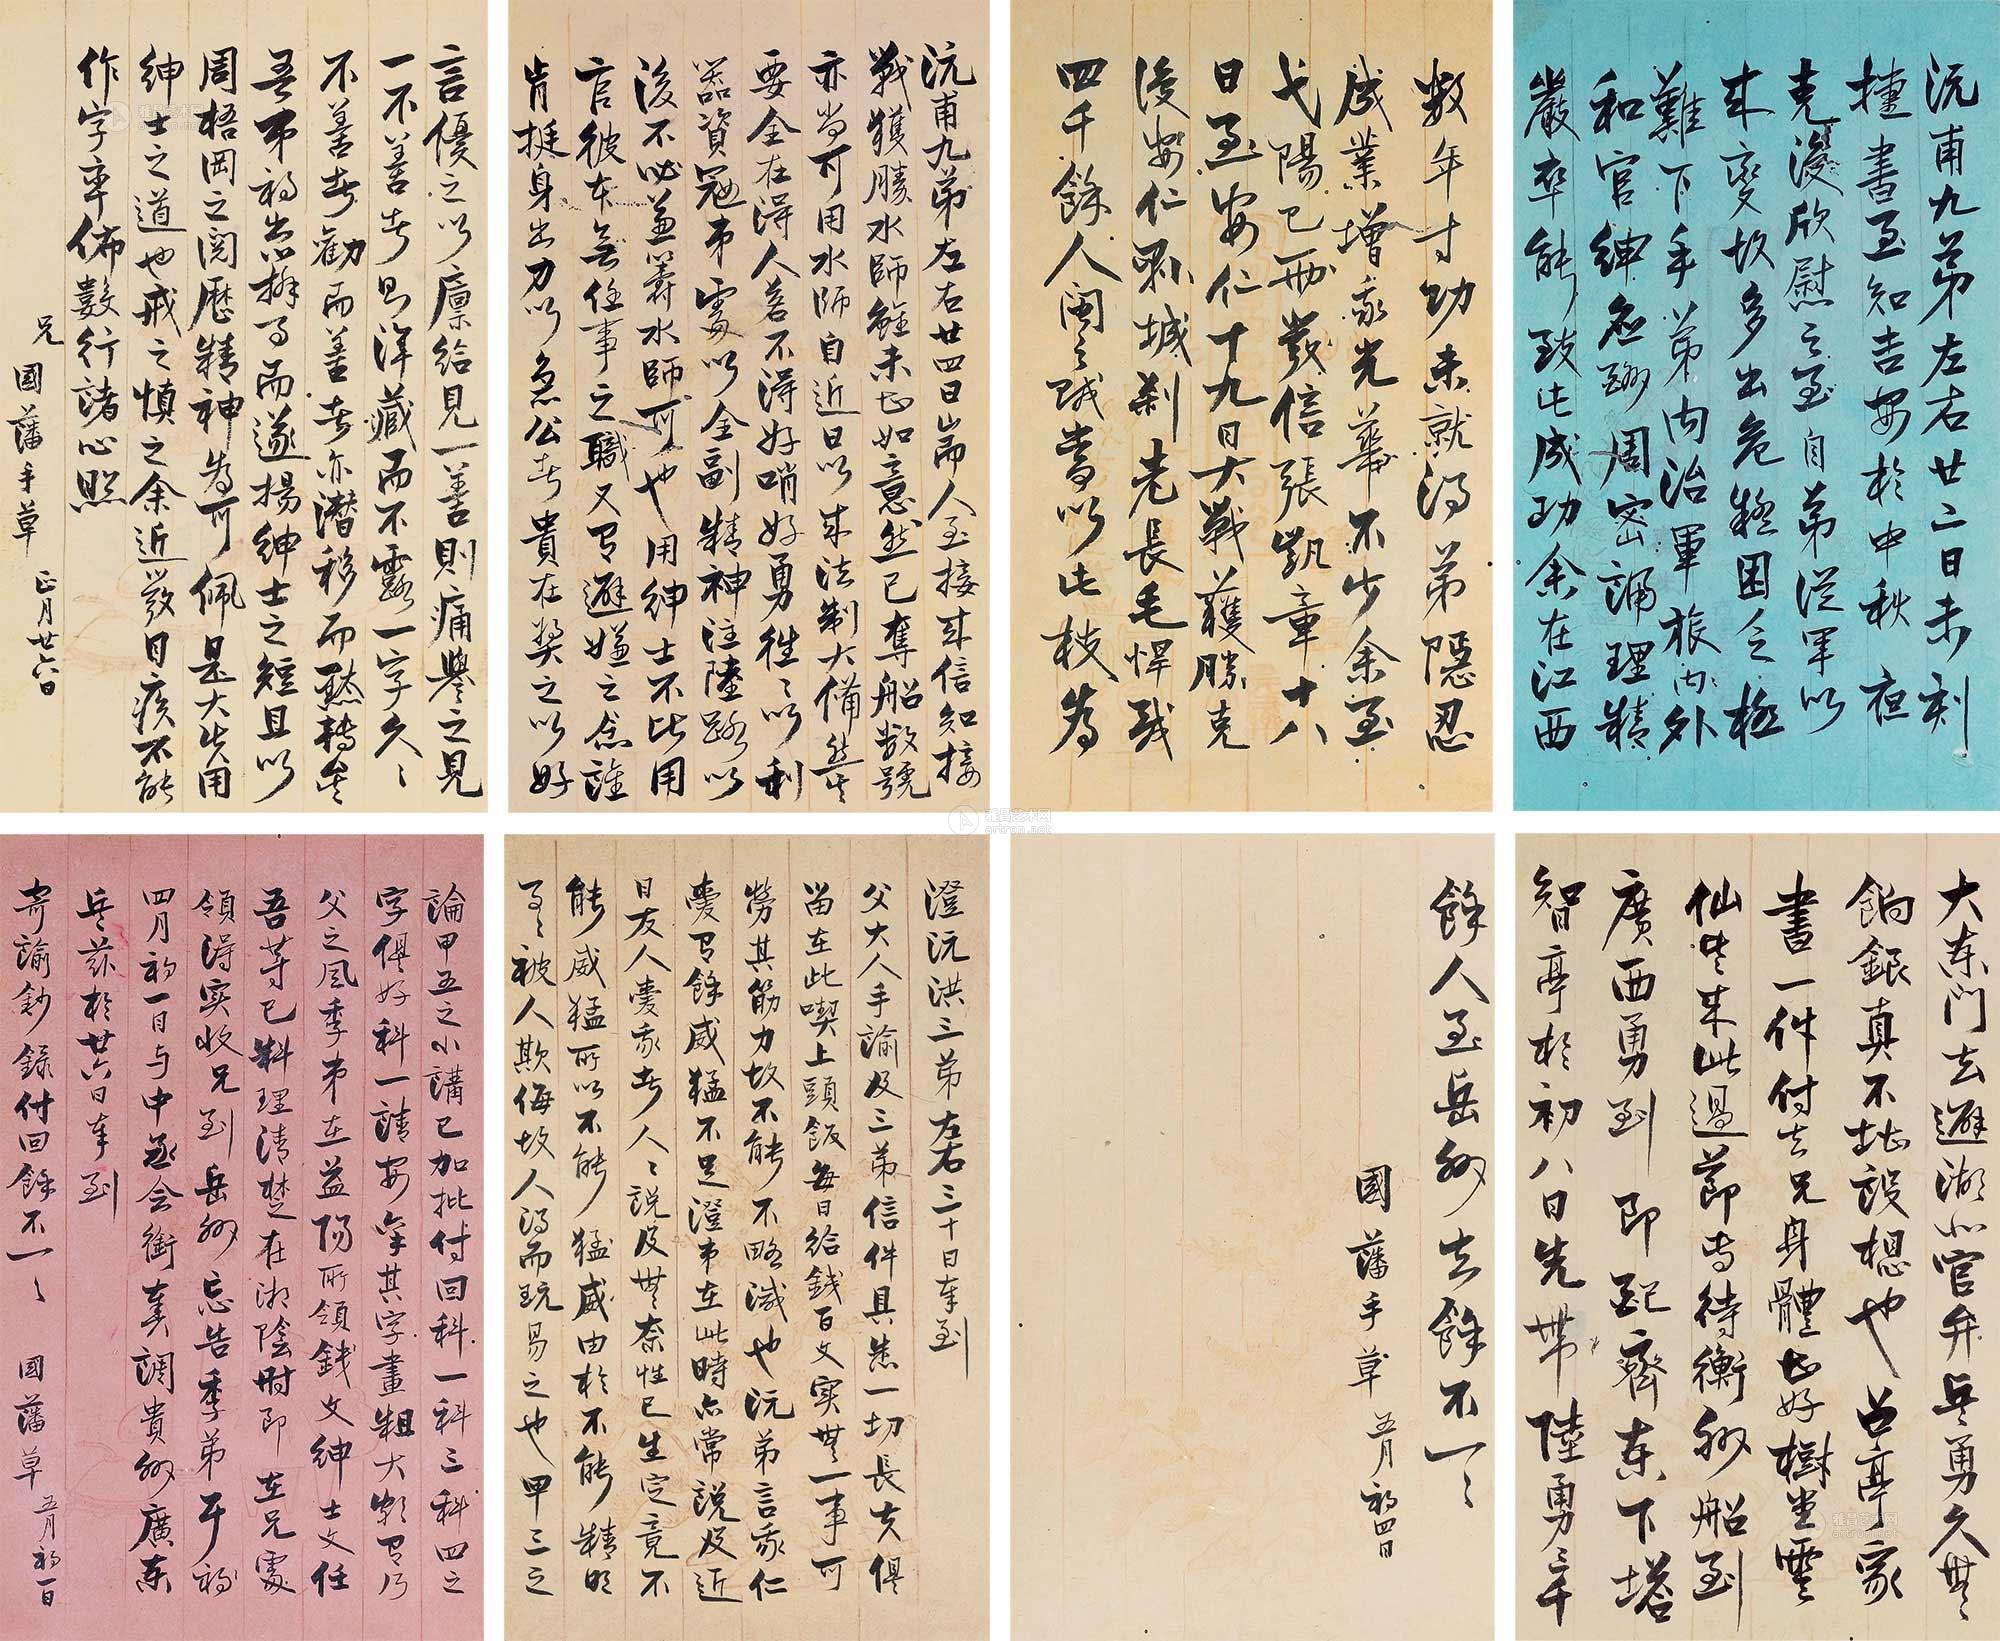 沅甫九弟左右廿二日未刻
捷書至知吉安於中秋夜
克復欣慰之至自弟從軍以
來變故多出危疑困乏極
難下手弟內治軍旅內外
和官紳應酬周密調理精
嚴卒能致此成功余在江西
數年寸功未就得弟隱忍
成業增我光華不少余至
弋陽已兩發信張凱章十八
日至安仁十九日大戰獲勝克
復安仁縣城剃老長毛悍賊
四千餘人閩之賊當以此枝為
沅甫九弟左右廿四日耑人至接來信知接
戰獲勝水師雖未甚如意然已奪船數號
亦尚可用水師自近日以來法制大備然其
要全在得人若不得好哨好勇往〻以利
器資寇弟處以全副精神注陸路以
後不必兼籌水師可也用紳士不比用
官彼本無任事之職又有避嫌之念誰
肯挺身出力以急公者貴在獎之以好
言優之以廩給見一善則痛譽之見
一不善者則渾藏而不露一字久〻
不善者勸而善者亦潛移而默轉矣
吾弟初出辦事而遂揚紳士之短且以
周梧岡之閱歷精神為可佩是大失用
紳士之道也戒之慎之余近發目疾不能
作字率佈數行諸心照
兄國藩手草 正月廿六日
大東門去避湖北官弁兵勇久無
餉銀真不堪設想也召亭家
書一件付去兄身體甚好樹堂雲
仙皆來此過節專待衡州船到
廣西勇到即配齊東下塔
智亭於初八日先帶陸勇三千
餘人至岳州去餘不一〻
國藩手草 五月初四日
澄沅洪三弟左右三十日奉到
父大人手諭及三弟信件具悉一切長夫俱
留在此喫上頭飯每日給錢百文實無一事可
勞其筋力故不能不略減也沅弟言我仁
愛有餘威猛不足澄弟在此時亦常說及近
日友人愛我者人〻說及無奈性已生定竟不
能威猛所以不能猛威由於不能精明
事〻被人欺侮故人得而玩易之也甲三之
論甲五之小講已加批付回科一科三科四之
字俱好科一請安稟其字畫粗大頗有乃
父之風季弟在益陽所領錢文紳士文任
吾等已料理清楚在湘陰時即在兄處
領得實收兄到岳州忘告季弟耳初
四月初一日与中丞会銜奏調貴州廣東
兵茲於廿六日奉到
寄諭鈔錄付回餘不一〻 國藩草 五月初一日